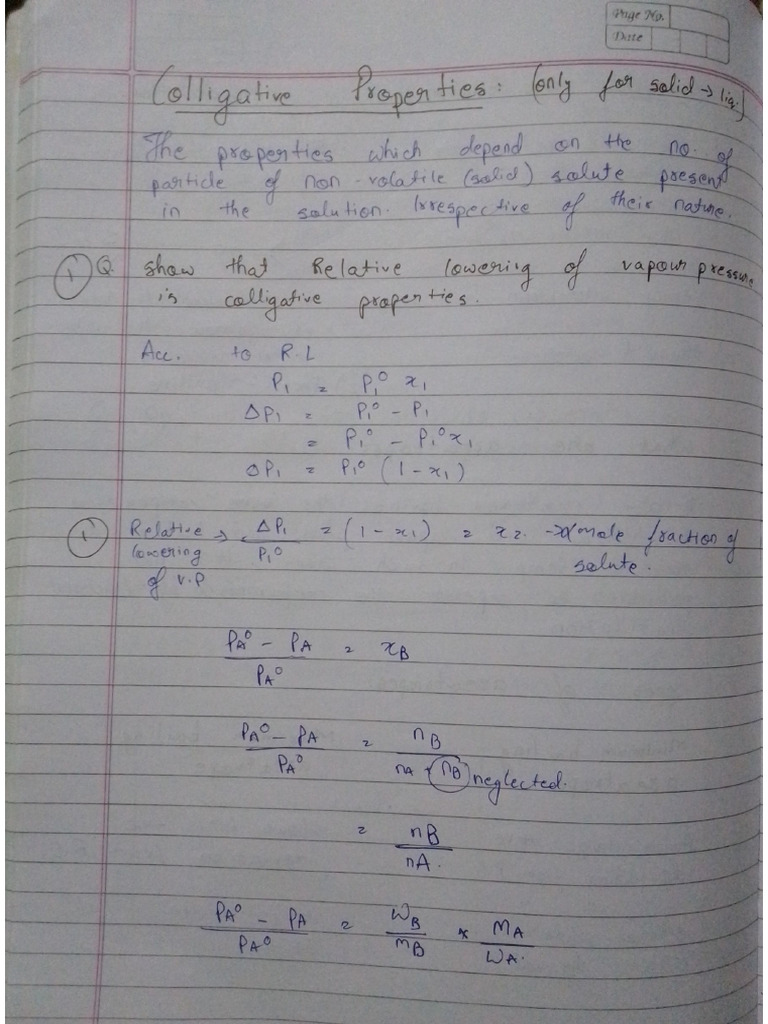 Page No.
Date
Colligative Properties: (only for solid → liq.)
The properties which depend on the no. of
particle of non-volatile (solid) solute present
in the solution. Irrespective of their nature.
① Q. show that Relative lowering of vapour pressure
is colligative properties.
Acc. to R.L
P₁ = P₁⁰ x₁
ΔP₁ = P₁⁰ - P₁
= P₁⁰ - P₁⁰x₁
ΔP₁ = P₁⁰ (1 - x₁)
① Relative lowering of V.P → ΔP₁/P₁⁰ = (1 - x₁) = x₂ → mole fraction of solute.
(PA⁰ - PA)/PA⁰ = xB
(PA⁰ - PA)/PA⁰ = nB/(nA + nB) neglected.
= nB/nA.
(PA⁰ - PA)/PA⁰ = WB/MB × MA/WA.